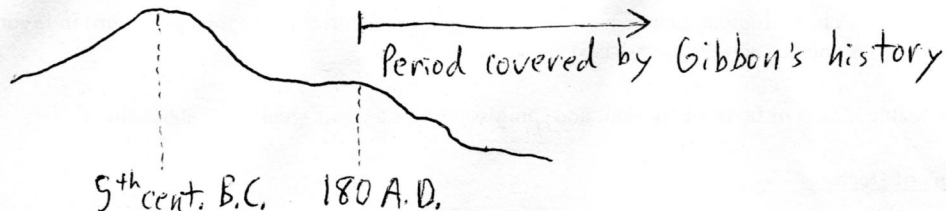 Period covered by Gibbon's history
5th cent. B.C. 180 A.D.